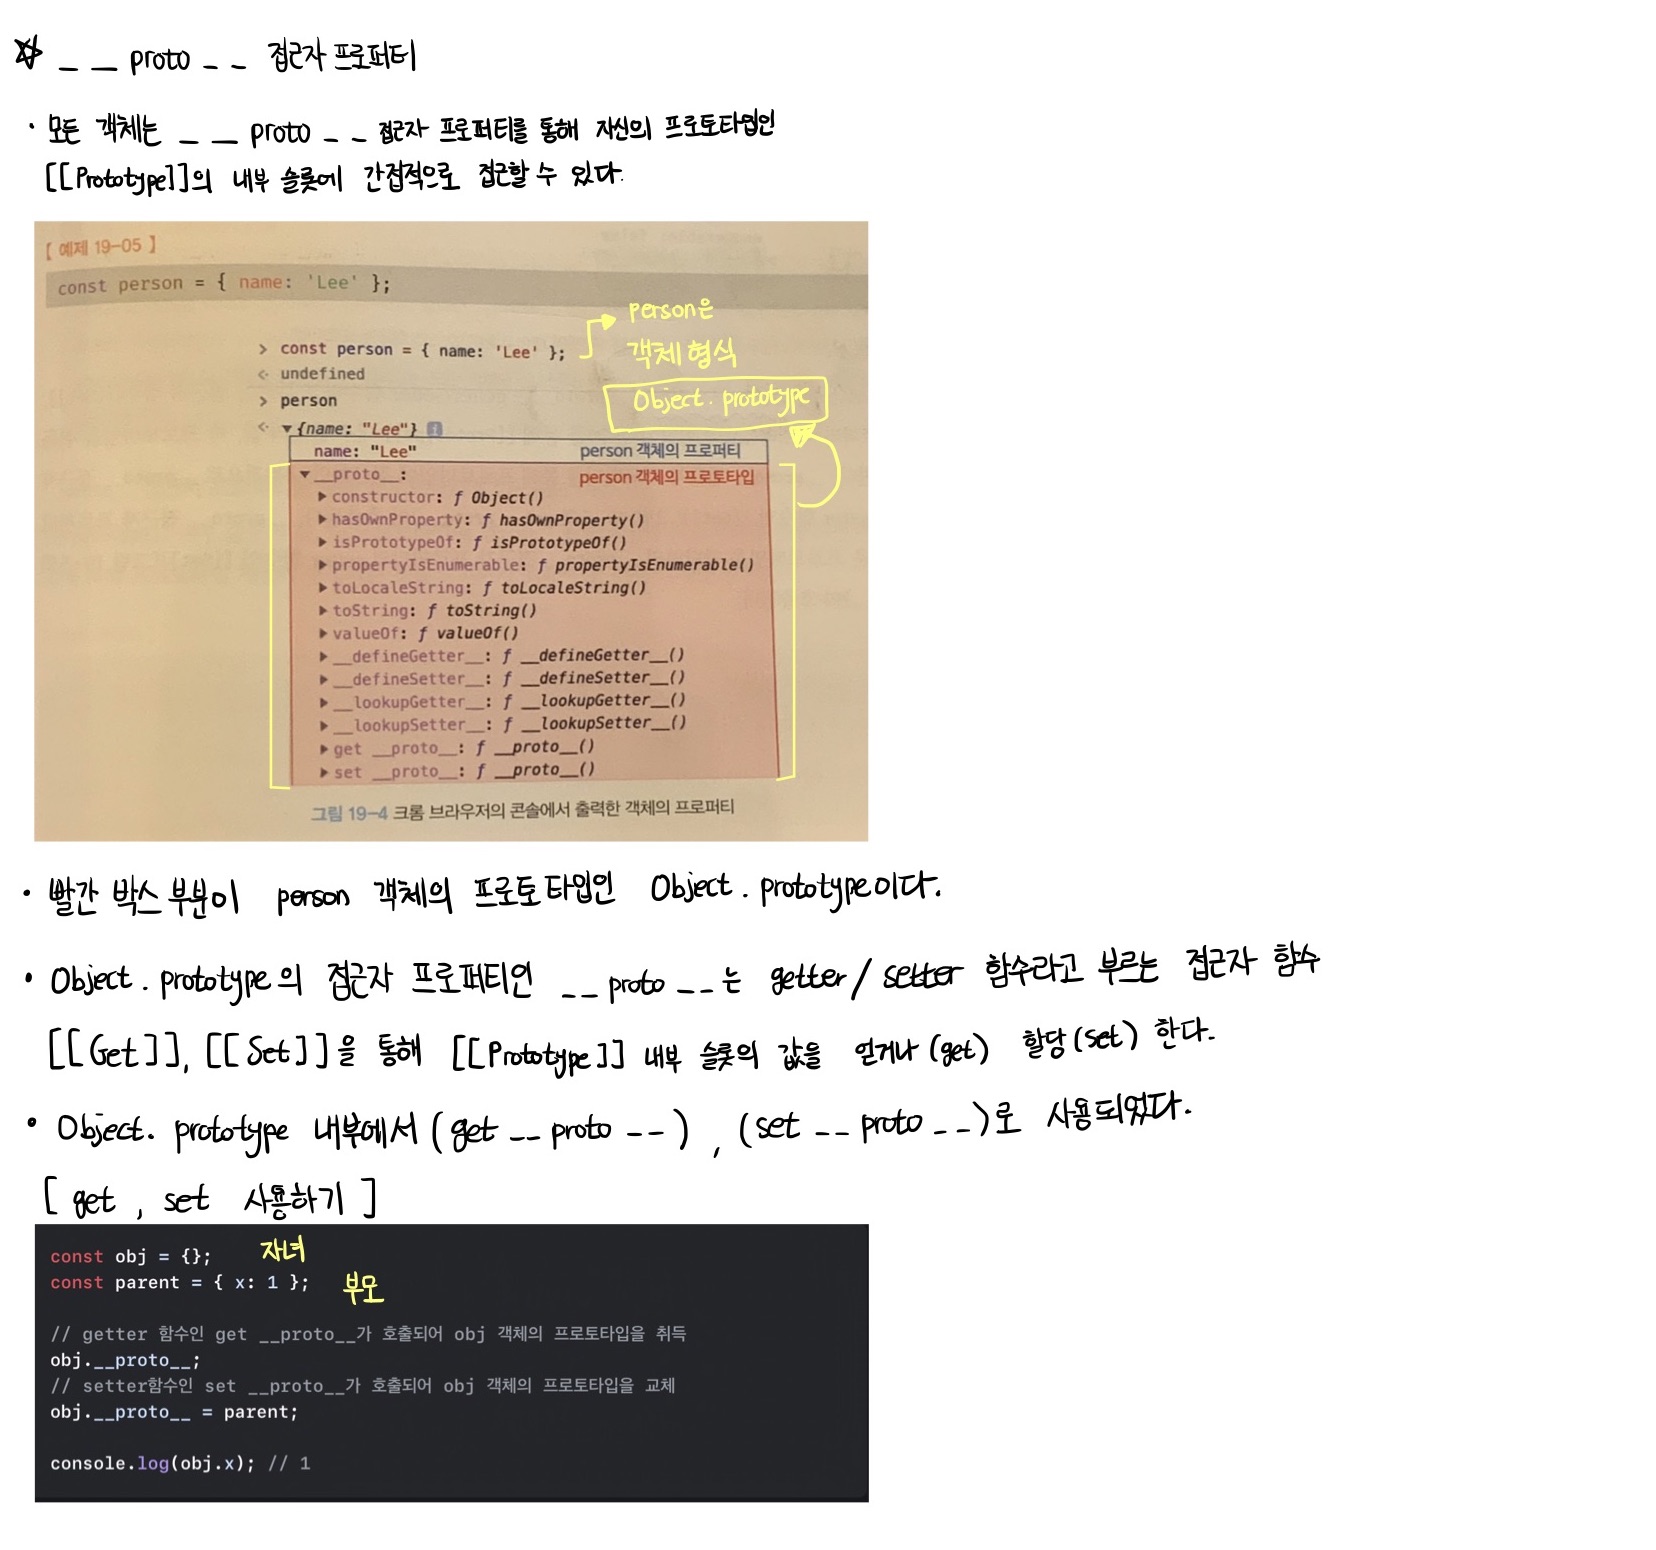 ☆ __proto__ 접근자 프로퍼티
· 모든 객체는 __proto__ 접근자 프로퍼티를 통해 자신의 프로토타입인
[[Prototype]]의 내부 슬롯에 간접적으로 접근할 수 있다.
【 예제 19-05 】
const person = { name: 'Lee' };
> const person = { name: 'Lee' };
person은
객체 형식
Object.prototype
<· undefined
> person
<· ▼{name: "Lee"} i
name: "Lee" person 객체의 프로퍼티
▼__proto__: person 객체의 프로토타입
▶constructor: ƒ Object()
▶hasOwnProperty: ƒ hasOwnProperty()
▶isPrototypeOf: ƒ isPrototypeOf()
▶propertyIsEnumerable: ƒ propertyIsEnumerable()
▶toLocaleString: ƒ toLocaleString()
▶toString: ƒ toString()
▶valueOf: ƒ valueOf()
▶__defineGetter__: ƒ __defineGetter__()
▶__defineSetter__: ƒ __defineSetter__()
▶__lookupGetter__: ƒ __lookupGetter__()
▶__lookupSetter__: ƒ __lookupSetter__()
▶get __proto__: ƒ __proto__()
▶set __proto__: ƒ __proto__()
그림 19-4 크롬 브라우저의 콘솔에서 출력한 객체의 프로퍼티
· 빨간 박스 부분이 person 객체의 프로토타입인 Object.prototype이다.
· Object.prototype의 접근자 프로퍼티인 __proto__는 getter/setter 함수라고 부르는 접근자 함수
[[Get]], [[Set]]을 통해 [[Prototype]] 내부 슬롯의 값을 얻거나(get) 할당(set) 한다.
· Object.prototype 내부에서 (get __proto__), (set __proto__)로 사용되었다.
[ get , set 사용하기 ]
const obj = {}; 자녀
const parent = { x: 1 }; 부모
// getter 함수인 get __proto__가 호출되어 obj 객체의 프로토타입을 취득
obj.__proto__;
// setter함수인 set __proto__가 호출되어 obj 객체의 프로토타입을 교체
obj.__proto__ = parent;
console.log(obj.x); // 1